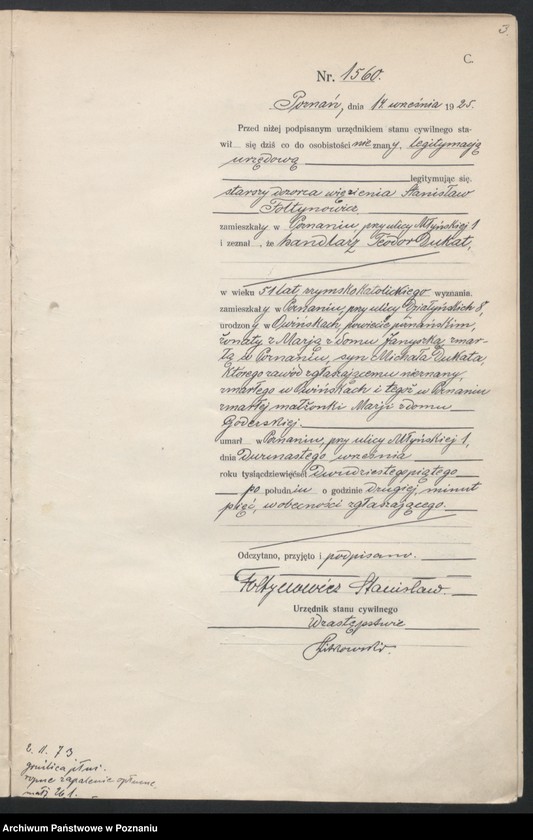 3.
C.
Nr. 1560.
Poznań, dnia 14 września 1925.
Przed niżej podpisanym urzędnikiem stanu cywilnego sta-
wił się dziś co do osobistości nieznany, legitymacją
urzędową
legitymując się.
starszy dozorca więzienia Stanisław
Fołtynowicz
zamieszkały w Poznaniu, przy ulicy Młyńskiej 1
i zeznał, że handlarz Teodor Dukat,
w wieku 51 lat, rzymskokatolickiego wyznania.
zamieszkały w Poznaniu, przy ulicy Działyńskich 8,
urodzony w Owińskach, powiecie poznańskim,
żonaty z Marją z domu zmar-
łą w Poznaniu, syn Michała Dukata,
którego zawód zgłaszającemu nieznany,
zmarłego w Owińskach i tegoż w Poznaniu
zmarłej małżonki Marji z domu
umarł w Poznaniu, przy ulicy Młyńskiej 1,
dnia Dwunastego września
roku tysiąc dziewięćset Dwudziestego piątego
po południu o godzinie drugiej, minut
pięć, w obecności zgłaszającego.
Odczytano, przyjęto i podpisano.
Fołtynowicz Stanisław.
Urzędnik stanu cywilnego
W zastępstwie
2. 11. 73
gruźlica płuc.
ropne zapalenie opłucnej,
Archiwum Państwowe w Poznaniu